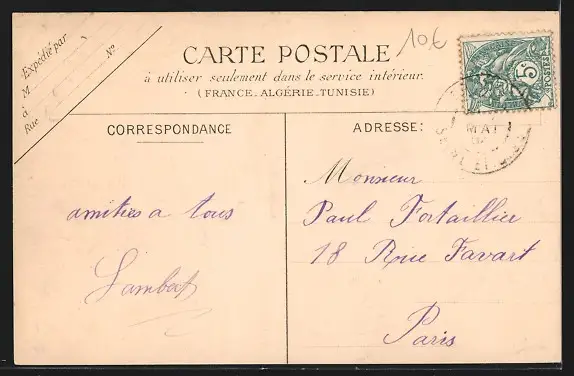 Expédié par
M
à
Rue
N°
10€
CARTE POSTALE
à utiliser seulement dans le service intérieur.
(FRANCE-ALGÉRIE-TUNISIE)
5c
POSTES
MAI
CORRESPONDANCE
ADRESSE:
amitiés a tous
Lambert
Monsieur
Paul Fortaillier
18 Rue Favart
Paris